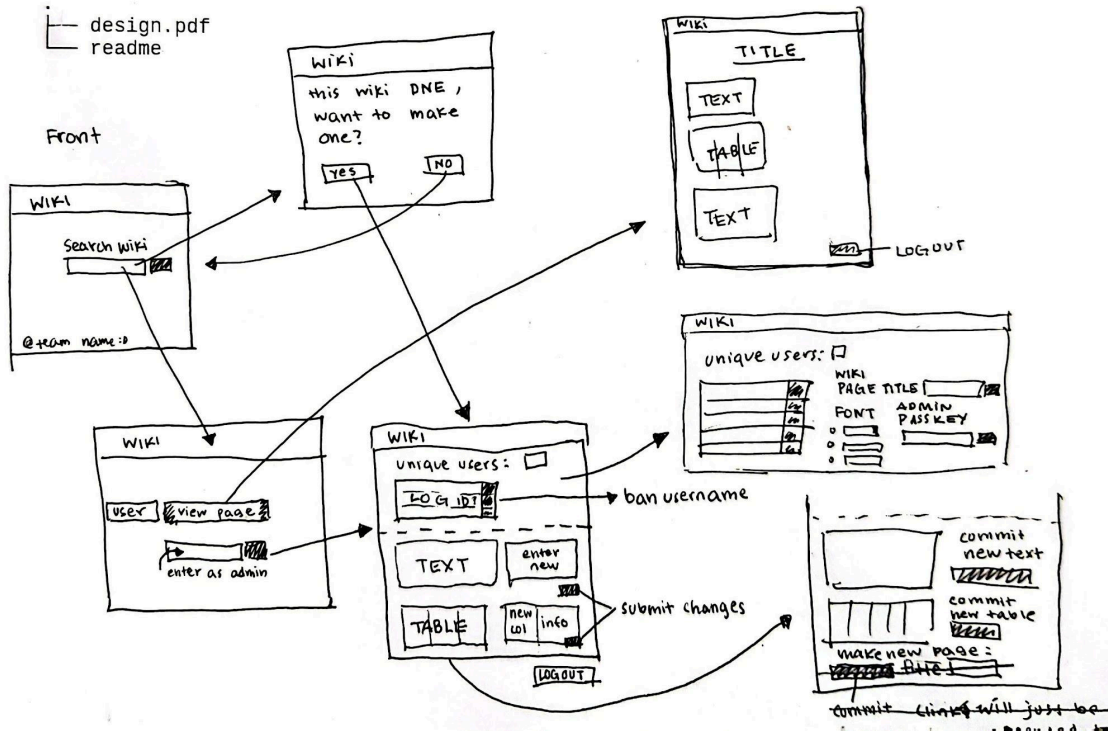 design.pdf
readme
Front
WIKI
Search Wiki
@team name:D
WIKI
this wiki DNE,
want to make
one?
yes
NO
WIKI
TITLE
TEXT
TABLE
TEXT
LOGOUT
WIKI
user
view page
enter as admin
WIKI
unique users:
LOG ID?
ban username
TEXT
enter
new
TABLE
new
col
info
submit changes
LOGOUT
WIKI
unique users:
WIKI
PAGE TITLE
FONT
ADMIN
PASSKEY
commit
new text
commit
new table
make new page:
commit
will just be